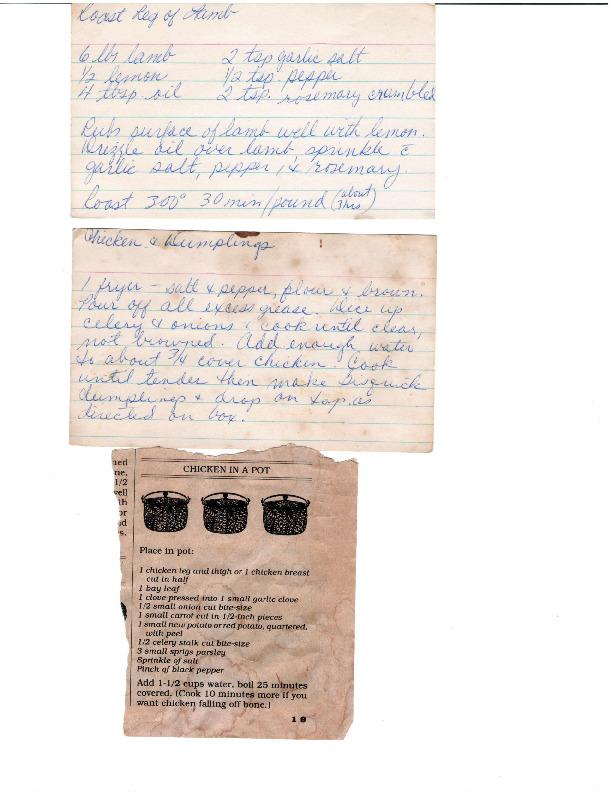 Roast Leg of Lamb
6 lbs lamb 2 tsp garlic salt
1/2 lemon 1/2 tsp. pepper
4 tbsp oil 2 tsp. rosemary crumbled
Rub surface of lamb well with lemon.
Drizzle oil over lamb, sprinkle c̄
garlic salt, pepper, & rosemary.
Roast 300° 30 min/pound (about 3 hrs)
Chicken & Dumplings
1 fryer - salt & pepper, flour & brown.
Pour off all excess grease. Dice up
celery & onions & cook until clear,
not browned. Add enough water
to about 3/4 cover chicken. Cook
until tender then make Bisquick
dumplings & drop on top as
directed on box.
CHICKEN IN A POT
Place in pot:
1 chicken leg and thigh or 1 chicken breast
cut in half
1 bay leaf
1 clove pressed into 1 small garlic clove
1/2 small onion cut bite-size
1 small carrot cut in 1/2-inch pieces
1 small new potato or red potato, quartered,
with peel
1/2 celery stalk cut bite-size
3 small sprigs parsley
Sprinkle of salt
Pinch of black pepper
Add 1-1/2 cups water, boil 25 minutes
covered. (Cook 10 minutes more if you
want chicken falling off bone.)
19